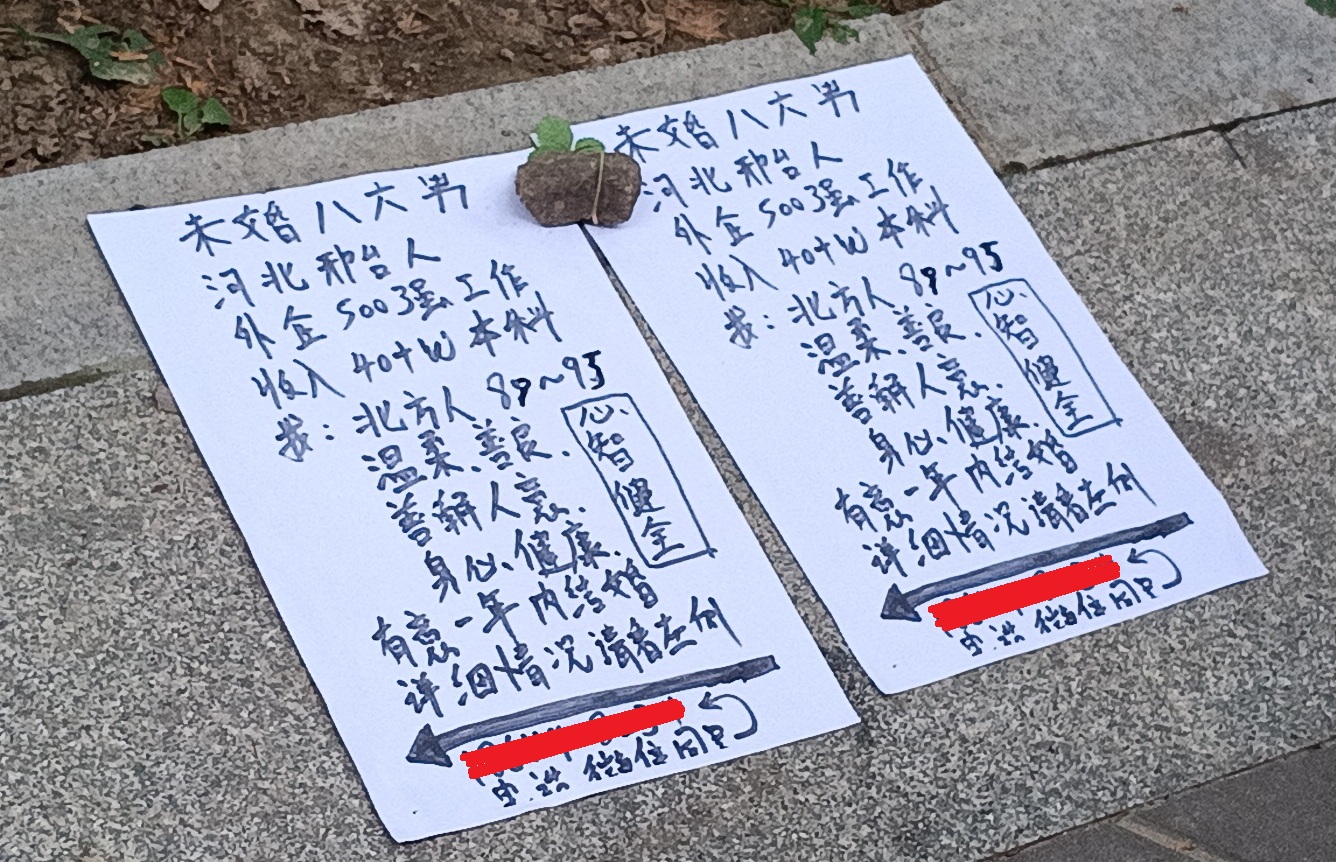 未婚八六男
河北邢台人
外企500强工作
收入40+W本科
我:北方人89~95
温柔、善良.
善解人意.
身心健康.
心智健全
有意一年内结婚
详细情况请看左侧
电话微信同号
未婚八六男
河北邢台人
外企500强工作
收入40+W本科
我:北方人89~95
温柔、善良.
善解人意.
身心健康.
心智健全
有意一年内结婚
详细情况请看左侧
电话微信同号